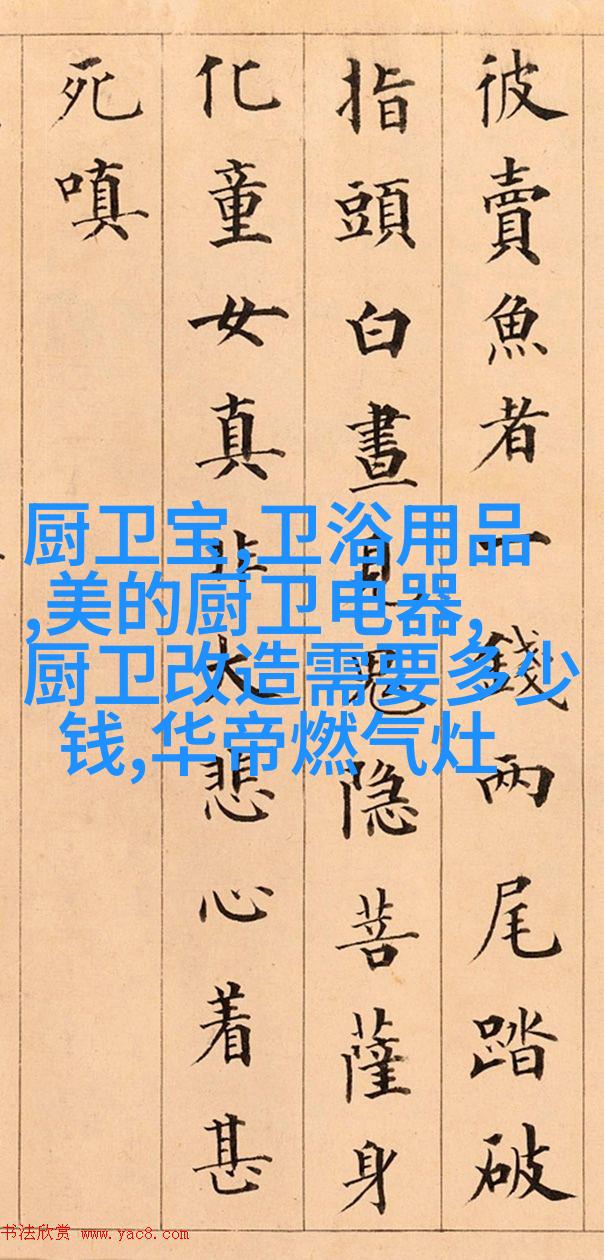 彼賣魚者一錢兩尾踏破
指頭白晝見鬼隐菩薩身
化童女真非大悲心着甚
死嗔
厨卫宝,卫浴用品
,美的厨卫电器,
厨卫改造需要多少
钱,华帝燃气灶
书法欣赏 www.yac8.com